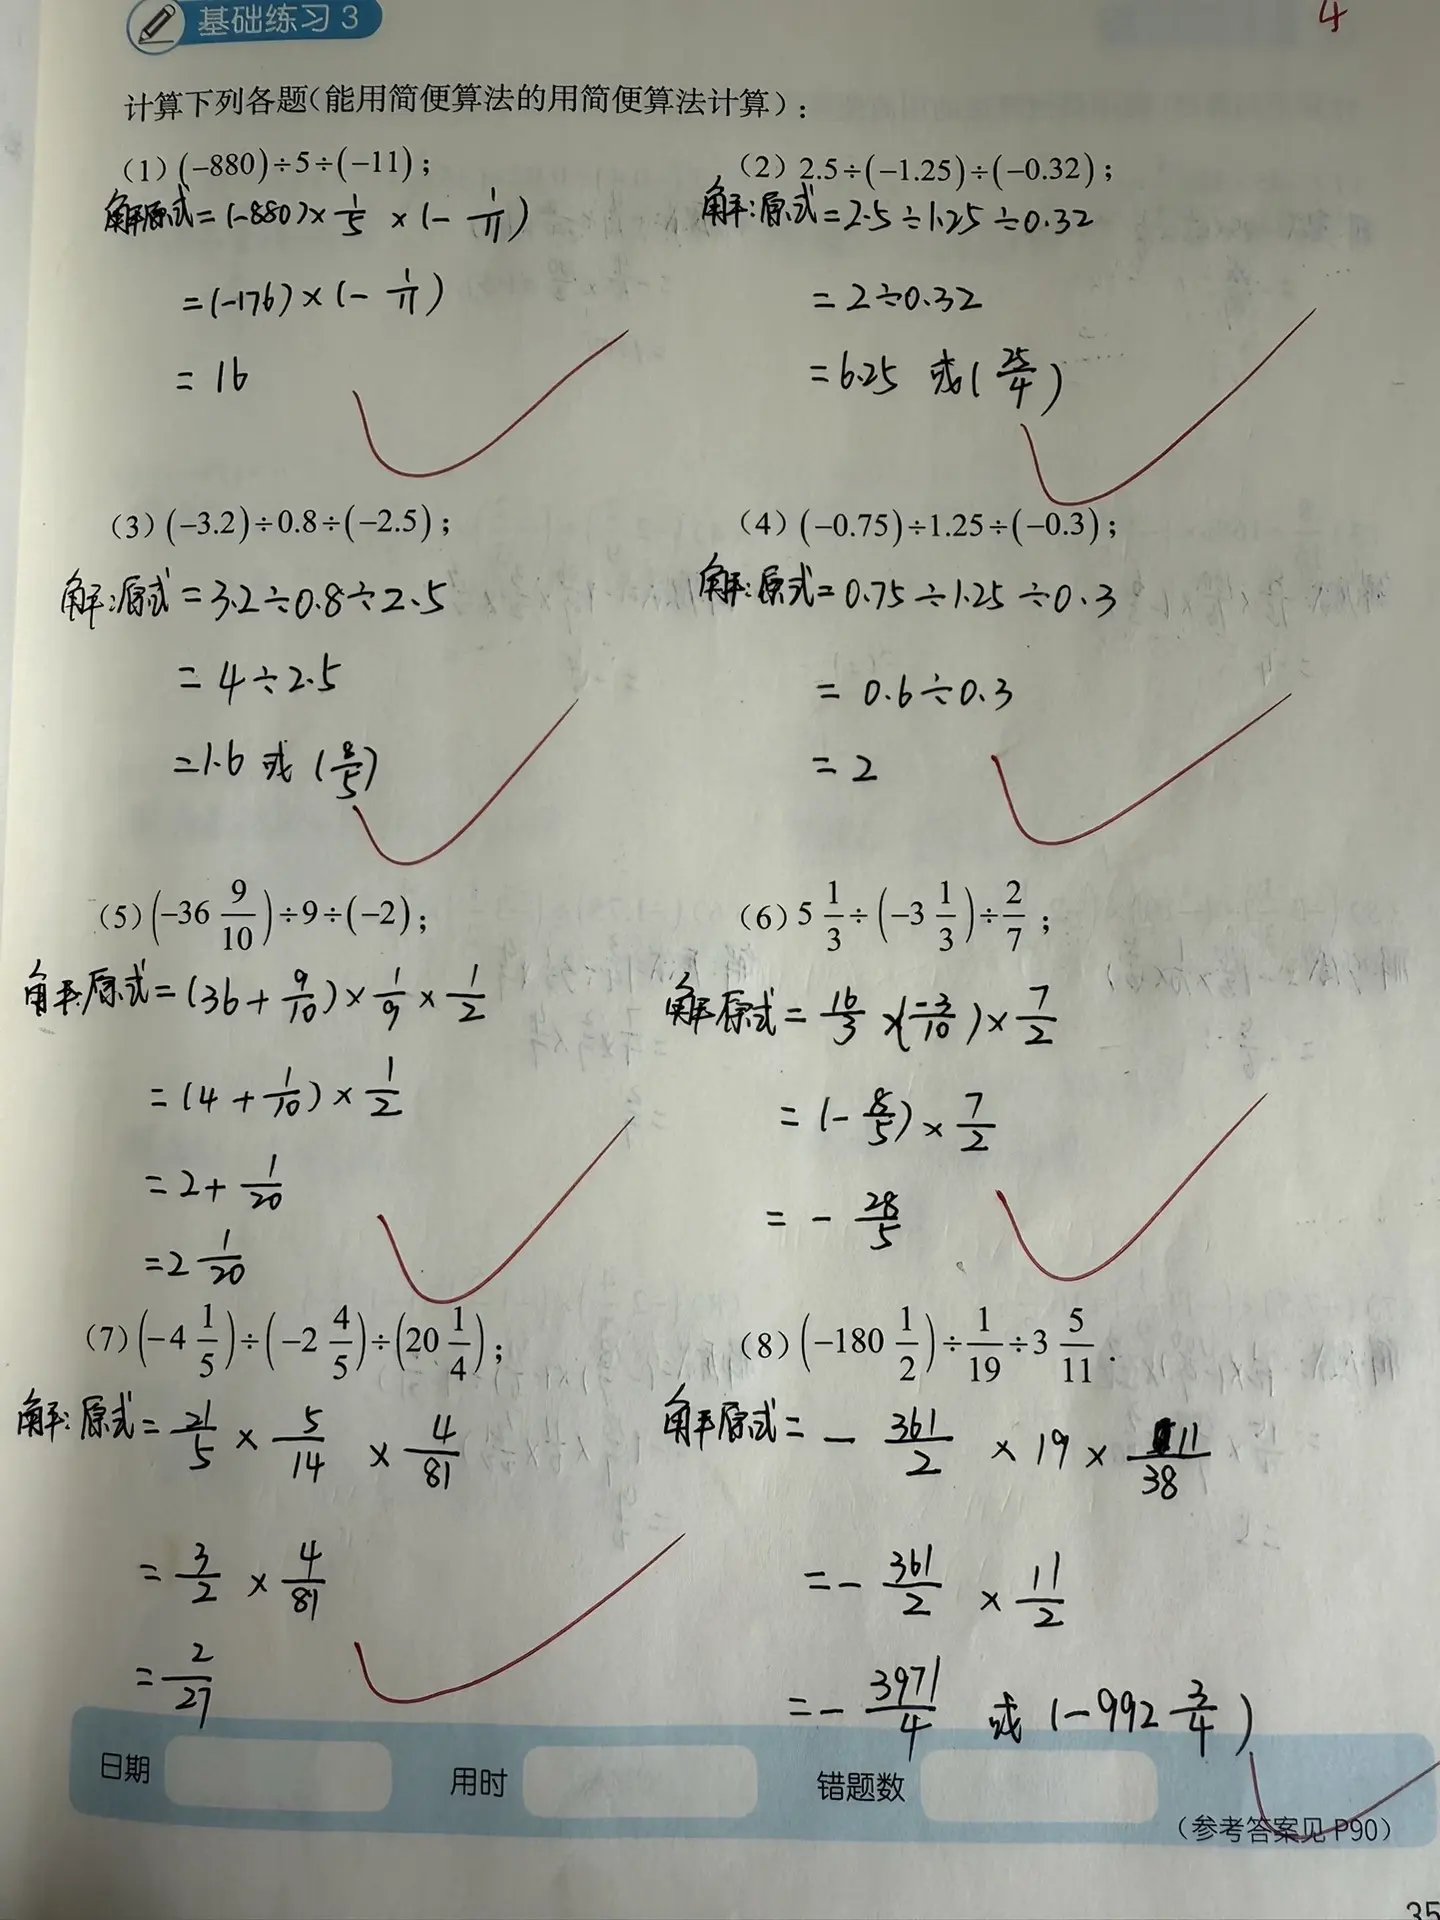 基础练习 3
4
计算下列各题(能用简便算法的用简便算法计算):
(1) (-880)÷5÷(-11);
解:原式=(-880)×1/5×(-1/11)
=(-176)×(-1/11)
= 16
(2) 2.5÷(-1.25)÷(-0.32);
解:原式=2.5÷1.25÷0.32
= 2÷0.32
=6.25 或(25/4)
(3) (-3.2)÷0.8÷(-2.5);
解:原式=3.2÷0.8÷2.5
= 4÷2.5
=1.6 或 (8/5)
(4) (-0.75)÷1.25÷(-0.3);
解:原式=0.75÷1.25÷0.3
= 0.6÷0.3
= 2
(5) (-36 9/10)÷9÷(-2);
解:原式=(36+9/10)×1/9×1/2
=(4+1/10)×1/2
=2+1/20
=2 1/20
(6) 5 1/3÷(-3 1/3)÷2/7;
解:原式=16/3×(-3/10)×7/2
=(-8/5)×7/2
= -28/5
(7) (-4 1/5)÷(-2 4/5)÷(20 1/4);
解:原式=21/5×5/14×4/81
=3/2×4/81
=2/27
(8) (-180 1/2)÷1/19÷3 5/11.
解:原式=-361/2×19×11/38
=-361/2×11/2
=-3971/4 或 (-992 3/4)
日期 用时 错题数
(参考答案见 P90)
35